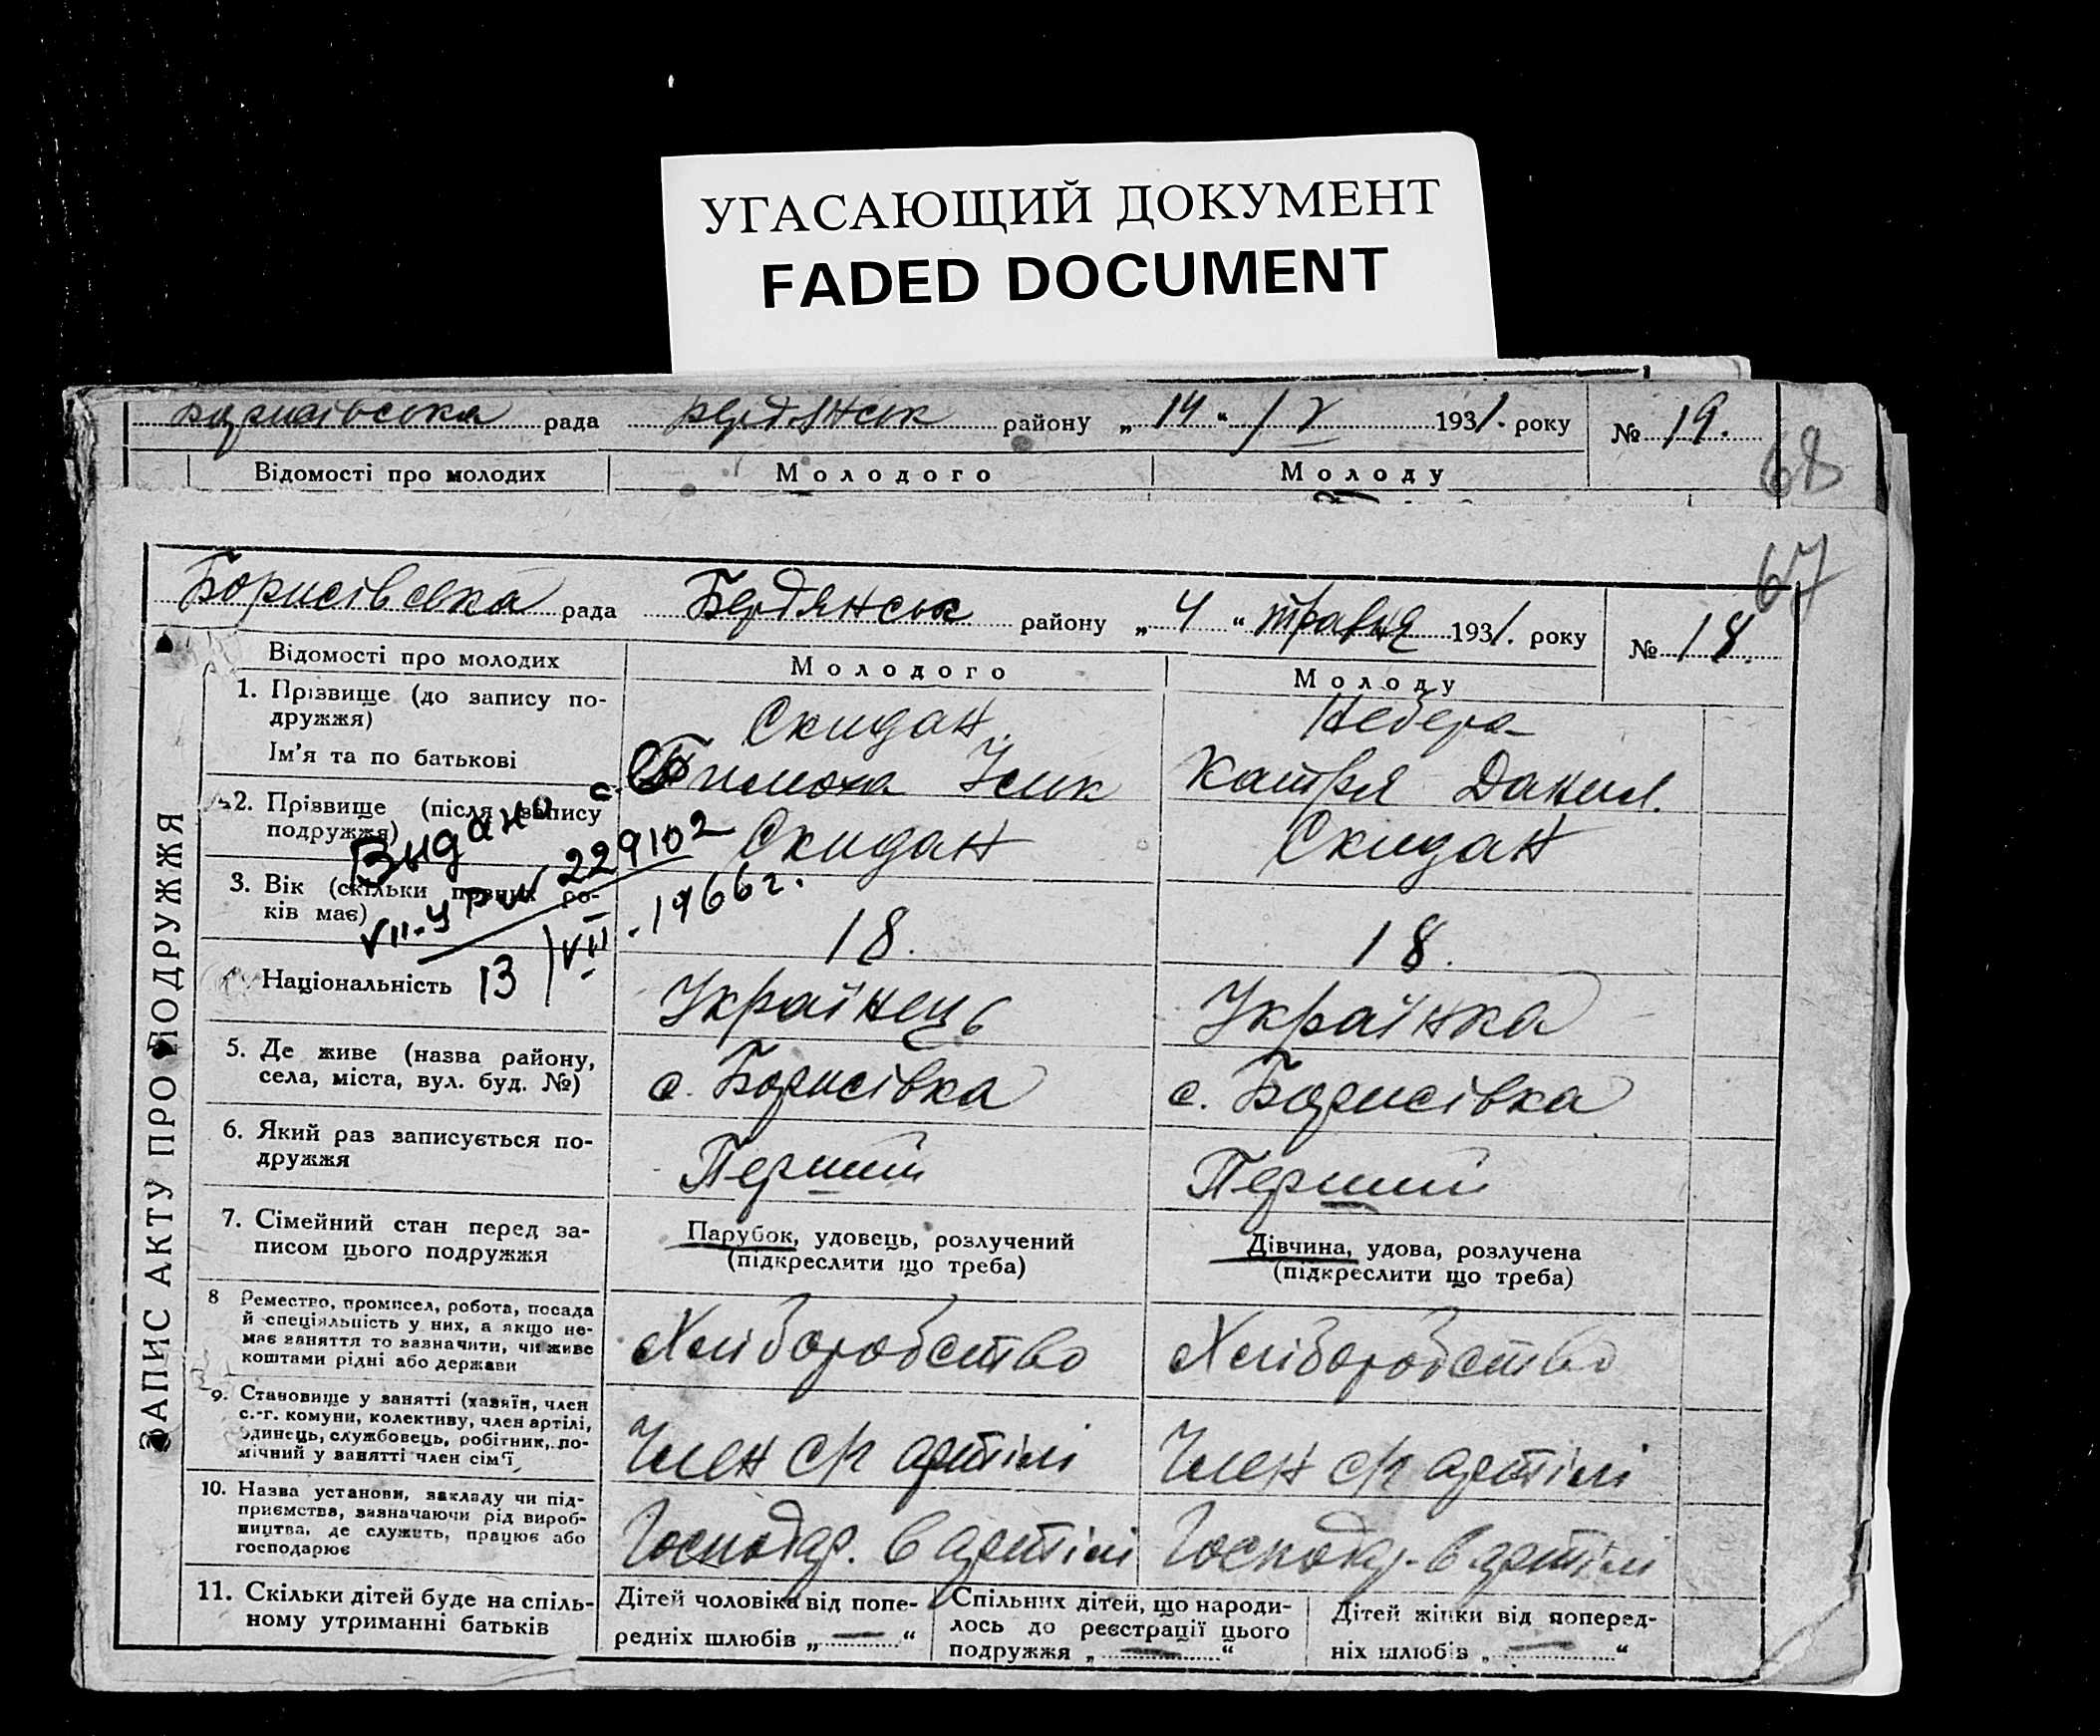 УГАСАЮЩИЙ ДОКУМЕНТ
FADED DOCUMENT
рада Бердянськ району „ 14 “ / V 1931. року № 19.
68
Відомості про молодих Молодого Молоду
67
Борисівська рада Бердянськ району „ 4 “ травня 1931. року № 18.
ЗАПИС АКТУ ПРО ПОДРУЖЖЯ
Відомості про молодих Молодого Молоду
1. Прізвище (до запису по-
дружжя)
Скидан Небера
Ім'я та по батькові
Тимоха Усик Катря Данил.
2. Прізвище (після запису
подружжя)
Скидан Скидан
Видано
VII-УР 229102
13/VII-1966г.
3. Вік (скільки повних ро-
ків має)
18. 18.
4. Національність Українець Українка
5. Де живе (назва району,
села, міста, вул. буд. №)
с. Борисівка с. Борисівка
6. Який раз записується по-
дружжя
Перший Перший
7. Сімейний стан перед за-
писом цього подружжя
Парубок, удовець, розлучений
(підкреслити що треба)
Дівчина, удова, розлучена
(підкреслити що треба)
8 Ремество, промисел, робота, посада
й спеціяльність у них, а якщо не-
має заняття то зазначити, чи живе
коштами рідні або держави
Хліборобство Хліборобство
9. Становище у занятті (хазяїн, член
с.-г. комуни, колективу, член артілі,
одинець, службовець, робітник, по-
мічний у занятті член сім'ї
Член с/г артілі Член с/г артілі
10. Назва установи, закладу чи під-
приємства, зазначаючи рід вироб-
ництва, де служить, працює або
господарює
Господар. в артілі Господар. в артілі
11. Скільки дітей буде на спіль-
ному утриманні батьків
Дітей чоловіка від попе-
редніх шлюбів „ — “
Спільних дітей, що народи-
лось до реєстрації цього
подружжя „ — “
Дітей жінки від поперед-
ніх шлюбів „ — “